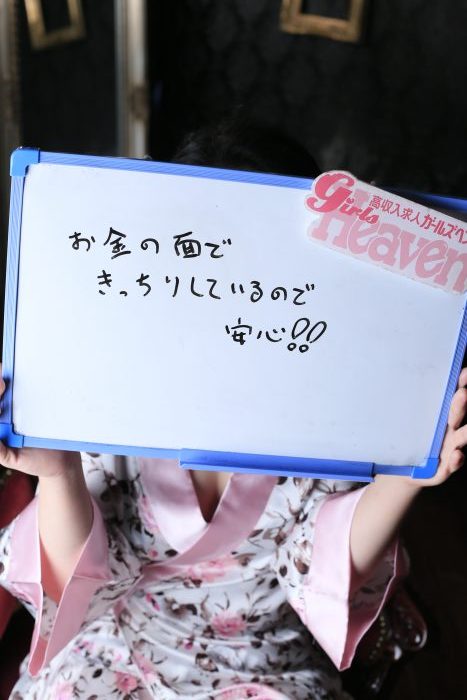 Girls
高収入求人ガールズヘ
Heaven
お金の面で
きっちりしているので
安心!!